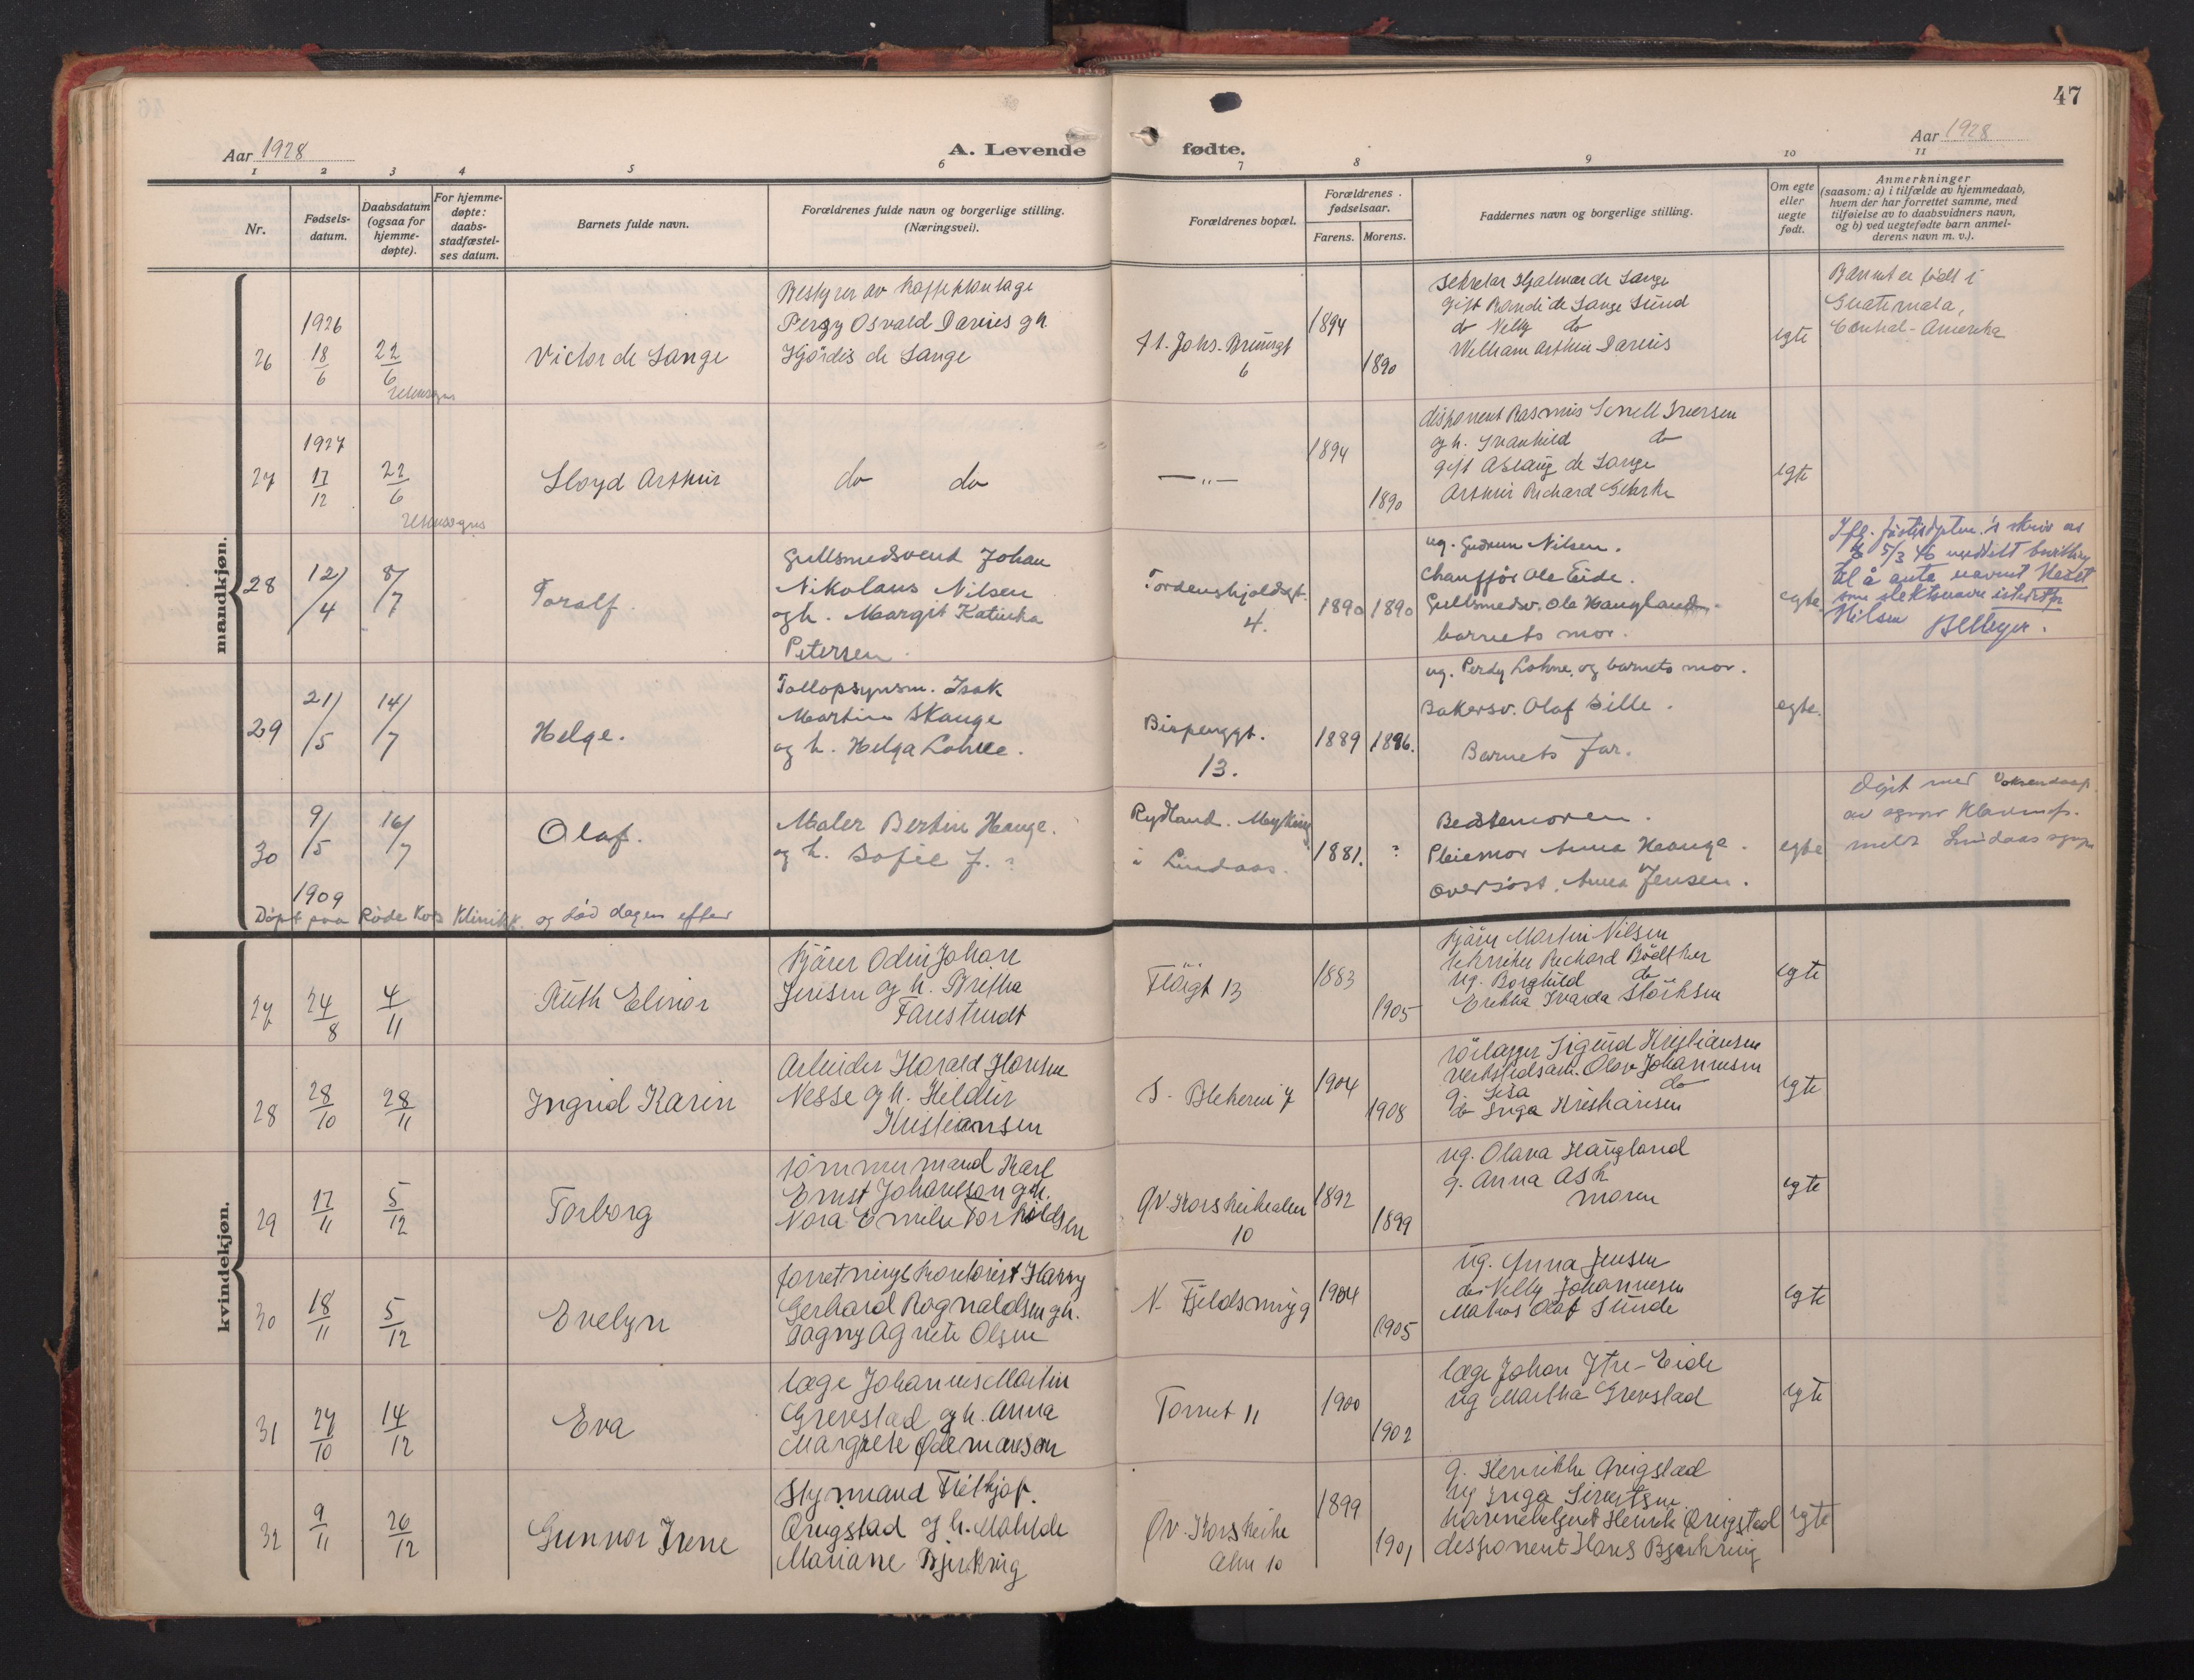 47
Aar 1928
A. Levende
fødte.
Aar 1928
1 2 3 4 5 6 7 8 9 10 11
Nr.
Fødsels-
datum.
Daabsdatum
(ogsaa for
hjemme-
døpte).
For hjemme-
døpte:
daabs-
stadfæstel-
ses datum.
Barnets fulde navn.
Forældrenes fulde navn og borgerlige stilling.
(Næringsvei).
Forældrenes bopæl.
Forældrenes
fødselsaar.
Farens. Morens.
Faddernes navn og borgerlige stilling.
Om egte
eller
uegte
født.
Anmerkninger
(saasom: a) i tilfælde av hjemmedaab,
hvem der har forrettet samme, med
tilføielse av to daabsvidners navn,
og b) ved uegtefødte barn anmel-
derens navn m. v.).
mandkjøn.
26
1926
18/6
22/6
Victor de Lange
Bestyrer av Kaffeplantage
Percy Osvald Davies g h.
Hjördis de Lange
6
1894
1890
Sekretær Hjalmar de Lange
gift Randi de Lange Sund
do Nelly do
William Arthur Davies
egte
Barnet er født i
Guatemala,
Central-Amerika
27
1927
17/12
22/6
Lloyd Arthur
do do
— „ —
1894
1890
disponent Rasmus Iversen
og h. Svanhild do
gift Aslaug de Lange
Arthur Richard
egte
28
12/4
8/7
Toralf.
Gullsmedsvend Johan
Nikolaus Nilsen
og h. Margit Katinka
Petersen.
Tordenskjoldsgt.
4.
1890 1890
ug. Gudrun Nilsen.
Chaufför Ole Eide.
Gullsmedsv. Ole Haugland.
barnets mor.
egte.
5/3 46 meddelt bevilling
til å anta navnet
som slektsnavn istedetfor
Nilsen
29
21/5
14/7
Helge.
Tallopsynsm. Isak
Martin Skauge
og h. Helga Lohne.
Bispenggt.
13.
1889 1896.
ug. Perdy Lohne, og barnets mor.
Bakersv. Olaf Sille.
Barnets far.
egte.
30
9/5
1909
16/7
Olaf.
Maler Bertin Hauge.
og h. Sofie J. ?
Rydland. Myking
i Lindaas.
1881. ?
Bestemoren.
Pleiemor Anna Hauge.
oversöst. Anna Jensen.
egte
Døpt paa Röde Kors Klinikk. og död dagen efter
kvindekjøn.
27
24/8
4/11
Ruth Elinor
Kjörer Odin Johan
Jensen og h. Britha
Farestvedt
Flöigt 13
1883
1905
Kjörer Martin Nilsen
tekniker Richard Bödtker
ug. Borghild do
egte
28
28/10
28/11
Ingrid Karin
Arbeider Harald Hansen
Nesse og h. Heldur
Kristiansen
S. Blekevei 7
1904
1908
rörlægger Sigurd Kristiansen
Verkstedsarb. Olav Johannesen
g. Lisa do
do Inga Kristiansen
egte
29
17/11
5/12
Torborg
tömmermand Karl
Ernst Johansson g h.
Nora Emilie Torkildsen
Øv. Korskirkealm
10
1892
1899
ug. Olava Haugland
g. Anna Ask
moren
egte
30
18/11
5/12
Evelyn
forretningskontorist Harry
Gerhard Rognaldsen g h.
Dagny Agnete Olsen
N. Fjeldsmug 9
1904
1905
ug. Anna Jensen
do Nelly Johannesen
Matros Olaf Sunde
egte
31
27/10
14/12
Eva
læge Johannes Martin
Grevstad og h. Anna
Margrete Ødemansen
Torvet 11
1900
1902
læge Johan Ytre-Eide
ug Martha Grevstad
egte
32
9/11
26/12
Gunvor Irene
Styrmand Fritjof
Qvigstad g h. Matilde
Mariane Bjerkvig
Øv. Korskirke
alm 10
1899
1901
g. Henrikke Qvigstad
ug Inga Sivertsen
Henrik Qvigstad
disponent Hans Bjerkvig
egte